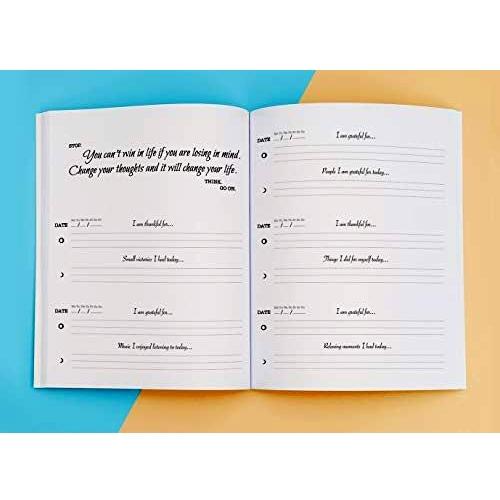 STOP.
You can't win in life if you are losing in mind.
Change your thoughts and it will change your life.
THINK.
GO ON.
DATE __/__/__ I am thankful for...
Small victories I had today...
DATE __/__/__ I am grateful for...
Music I enjoyed listening to today...
DATE __/__/__ I am grateful for...
People I am grateful for today...
DATE __/__/__ I am thankful for...
Things I did for myself today...
DATE __/__/__ I am grateful for...
Relaxing moments I had today...